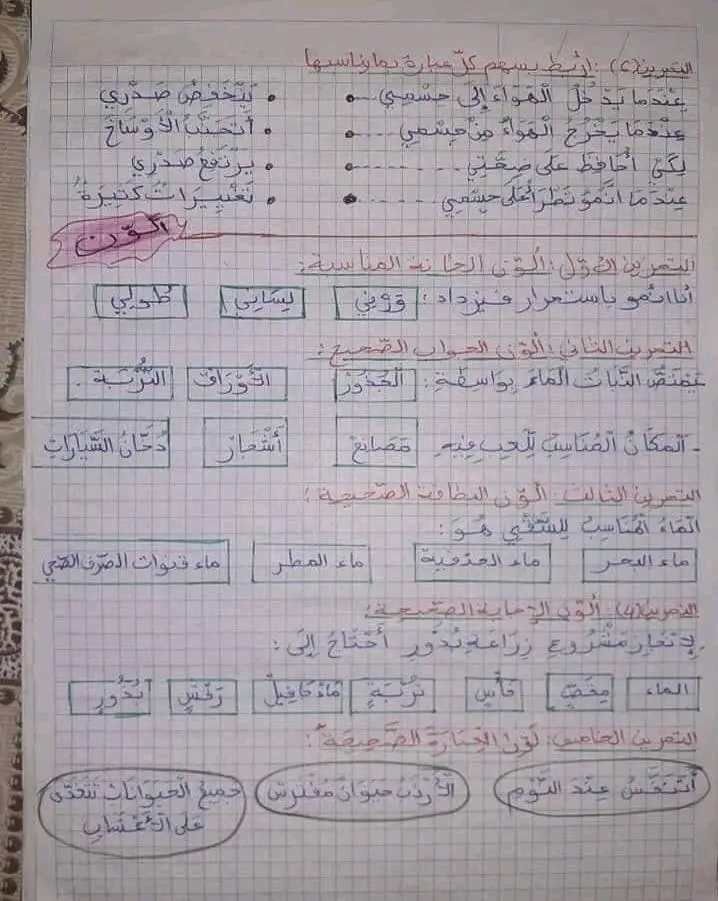 التمرين (6): أربط بسهم كل عبارة بما يناسبها
عِنْدَمَا يَدْخُلُ الْهَوَاءَ إِلَى جِسْمِي ... • • يَنْخَفِضُ صَدْرِي
عِنْدَمَا يَخْرُجُ الْهَوَاءُ مِنْ جِسْمِي ... • • أَتَجَنَّبُ الْأَوْسَاخَ
لِكَيْ أُحَافِظَ عَلَى صِحَّتِي ... • • يَرْتَفِعُ صَدْرِي
عِنْدَمَا أَنْمُو تَطْرَأُ عَلَى جِسْمِي ... • • تَغْيِيرَاتٌ كَثِيرَةٌ
ألوّن
التمرين الأول: ألوّن الخانة المناسبة:
أنا أنمو باستمرار فيزداد: وزني لِبَاسِي طُولِي
التمرين الثاني: ألوّن الجواب الصّحيح:
يَمْتَصُّ النَّبَاتُ الْمَاءَ بِوَاسِطَةِ: الْجُذُورِ الْأَوْرَاقِ التُّرْبَةِ.
- الْمَكَانُ الْمُنَاسِبُ لِلَّعِبِ فِيهِ. مَصَانِعُ أَشْجَارٌ دُخَانُ السَّيَّارَاتِ
التمرين الثالث: ألوّن البطاقة الصّحيحة:
الْمَاءُ الْمُنَاسِبُ لِلسَّقْيِ هُوَ:
ماء البحر ماء الحنفية ماء المطر ماء قنوات الصرف الصحي
التمرين (4): ألوّن الإجابة الصّحيحة:
لِإِنْجَازِ مَشْرُوعِ زِرَاعَةِ بُذُورٍ أَحْتَاجُ إِلَى:
الماء مِقَصٍّ فَأْسٍ تُرْبَةٍ رَفْشٍ بُذُورٍ
التمرين الخامس: لَوِّن العِبَارَةَ الصَّحِيحَةَ:
أَتَنَفَّسُ عِنْدَ النَّوْمِ الْأَرْنَبُ حَيَوَانٌ مُفْتَرِسٌ جَمِيعُ الْحَيَوَانَاتِ تَتَغَذَّى
عَلَى الْأَعْشَابِ